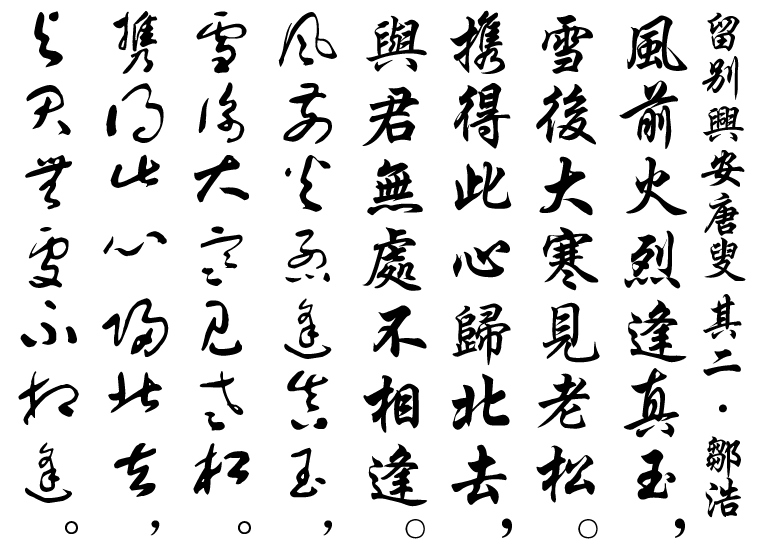 留别興安唐叟其二·鄒浩
風前火烈逢真玉，
雪後大寒見老松。
攜得此心歸北去，
與君無處不相逢。
風前火烈逢真玉，
雪後大寒見老松。
攜得此心歸北去，
與君無處不相逢。